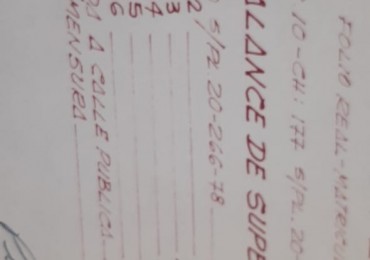 FOLIO REAL-MATRICU
10-CH: 177 S/PL. 20-
ALANCE DE SUPE
S/PL. 20-266-78
2
3
4
5
6
A CALLE PUBLICA
MENSURA